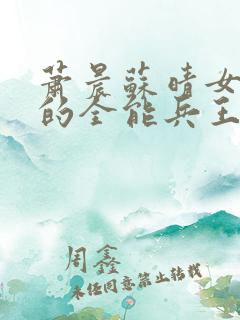 萧晨蘇晴女
的全能兵王
周鑫
未经同意禁止转载